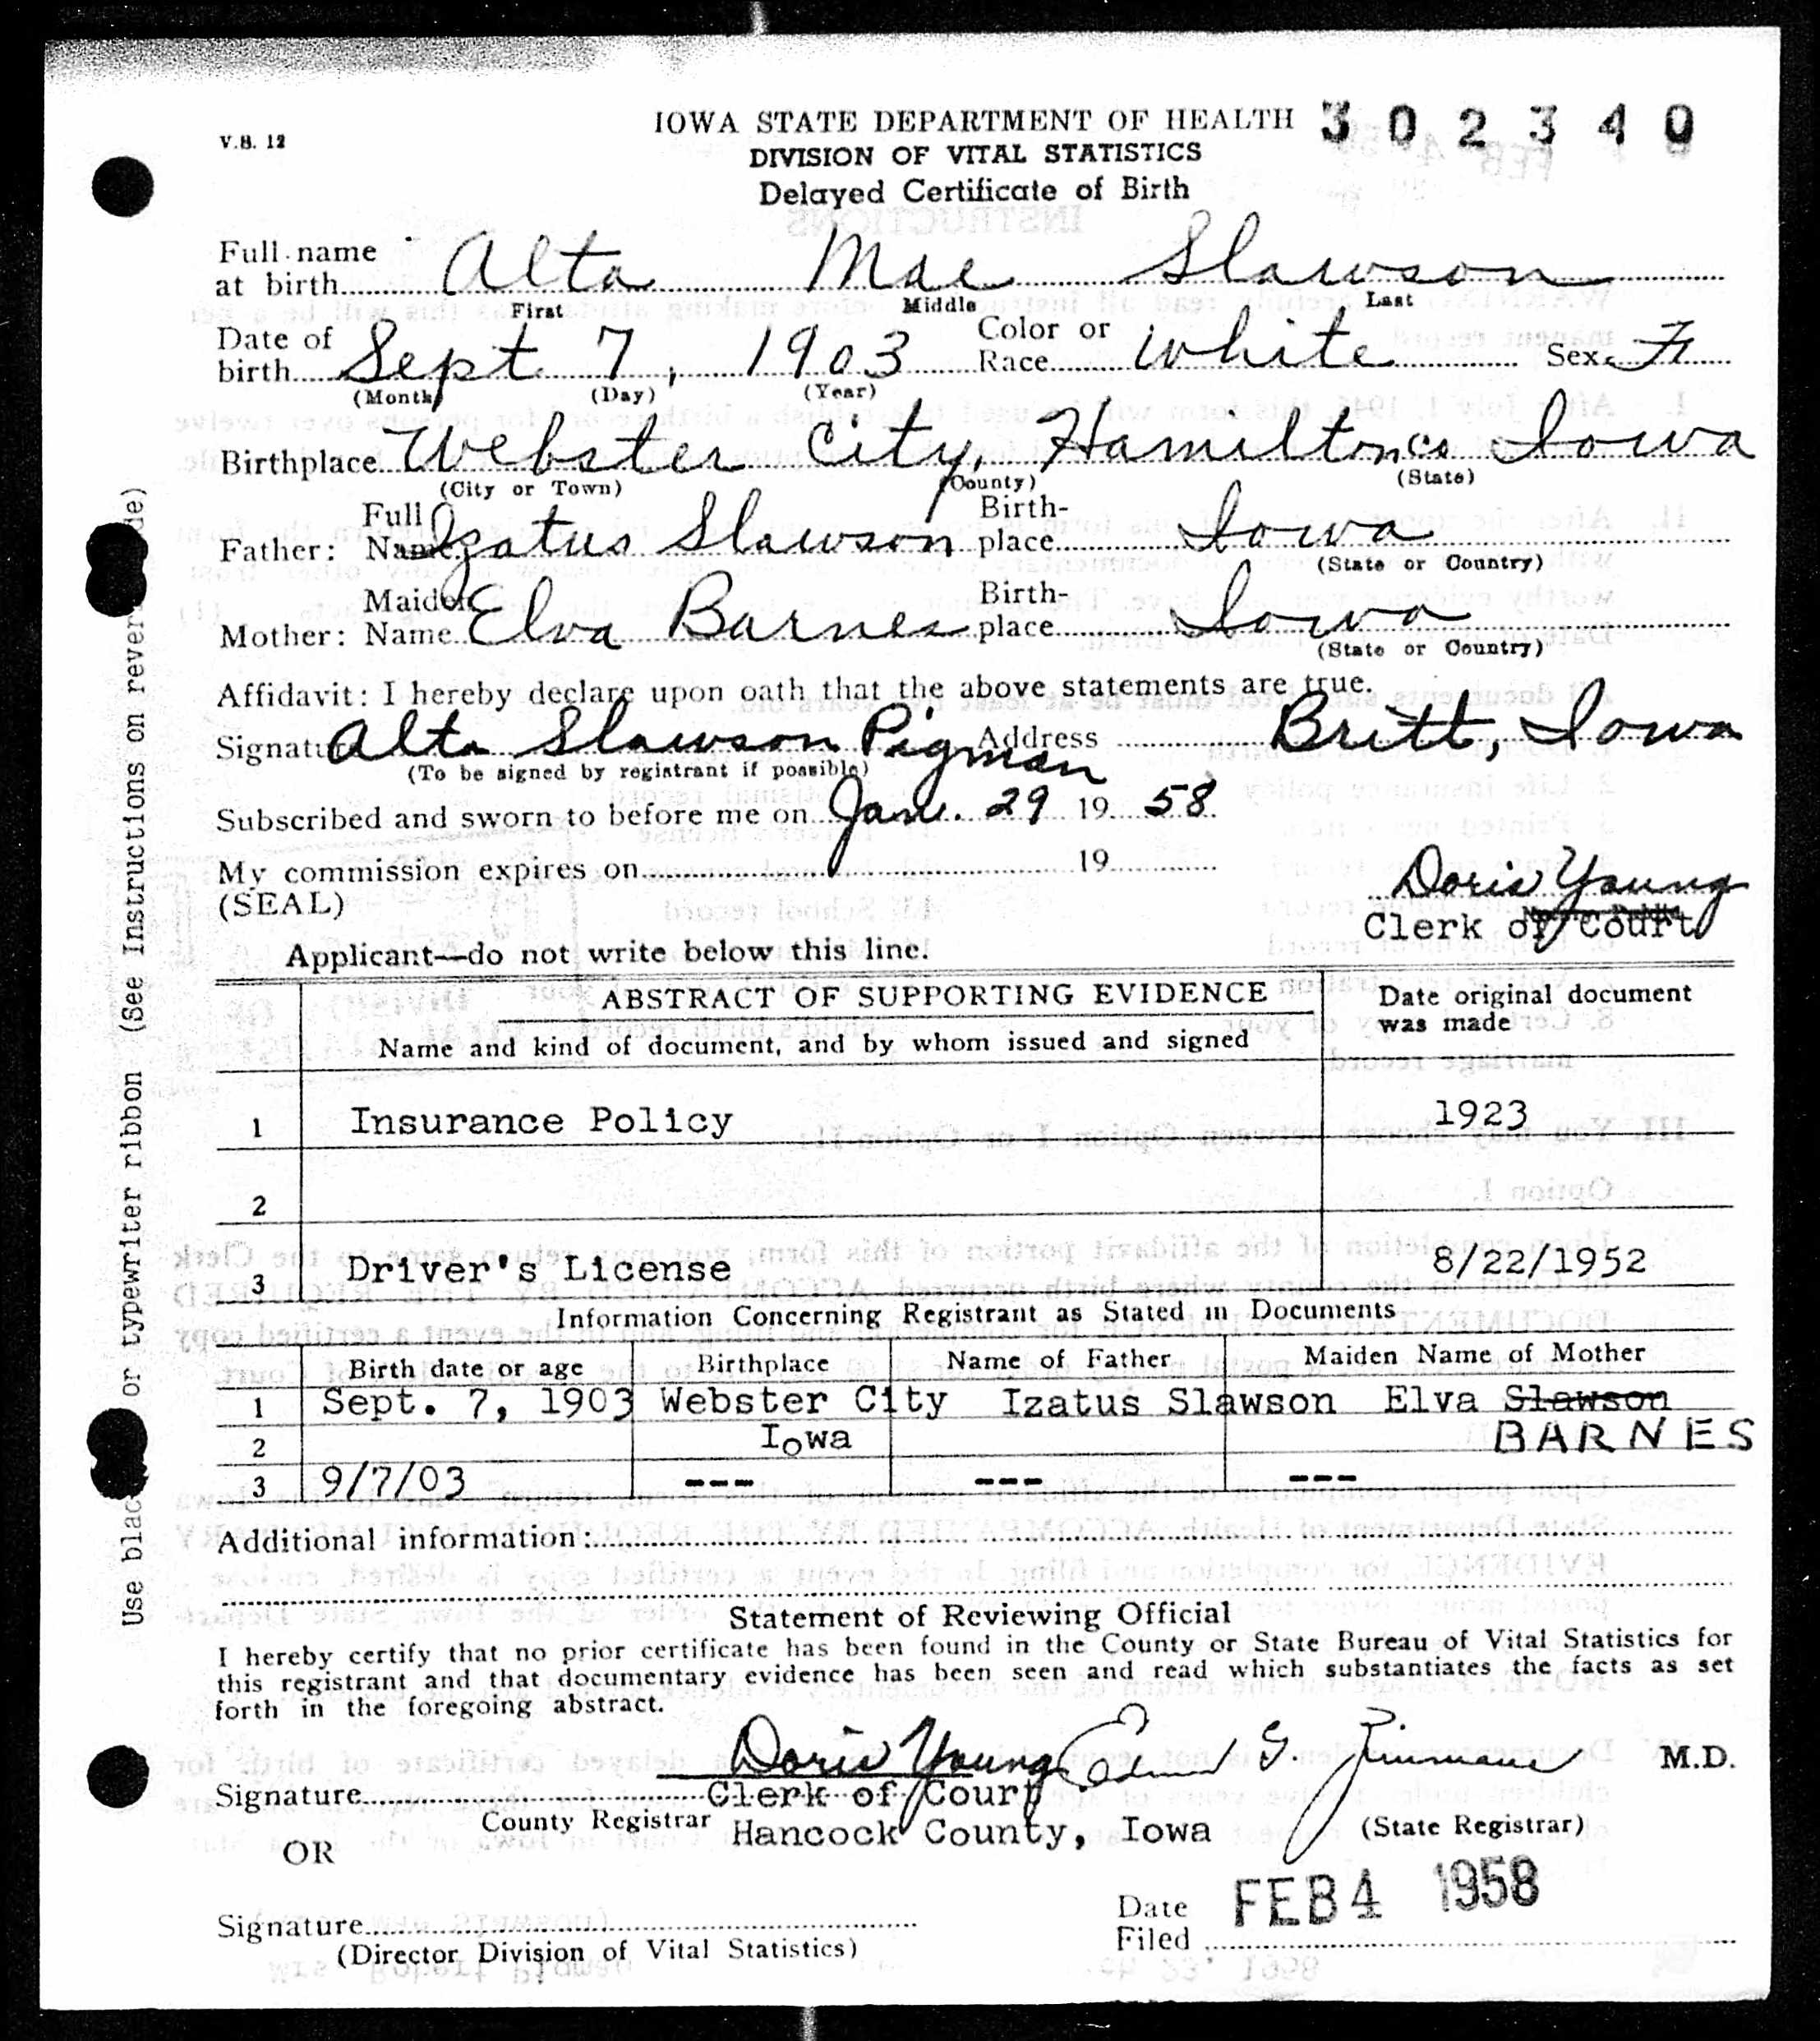 V.S. 12
IOWA STATE DEPARTMENT OF HEALTH 302340
DIVISION OF VITAL STATISTICS
Delayed Certificate of Birth
Full name at birth Alta Mae Slawson
First Middle Last
Date of birth Sept 7, 1903 Color or Race White Sex F
(Month) (Day) (Year)
Birthplace Webster City, Hamilton Co Iowa
(City or Town) (County) (State)
Father: Full Name Izatus Slawson Birthplace Iowa
(State or Country)
Mother: Maiden Name Elva Barnes Birthplace Iowa
(State or Country)
Affidavit: I hereby declare upon oath that the above statements are true.
Signature Alta Slawson Pigman Address Britt, Iowa
(To be signed by registrant if possible)
Subscribed and sworn to before me on Jan. 29 19 58
My commission expires on 19
(SEAL) Doris Young
Clerk of Court
Applicant—do not write below this line.
ABSTRACT OF SUPPORTING EVIDENCE Date original document
Name and kind of document, and by whom issued and signed was made
1 Insurance Policy 1923
2
3 Driver's License 8/22/1952
Information Concerning Registrant as Stated in Documents
Birth date or age Birthplace Name of Father Maiden Name of Mother
1 Sept. 7, 1903 Webster City Izatus Slawson Elva Slawson
2 Iowa BARNES
3 9/7/03 --- --- ---
Additional information:
Statement of Reviewing Official
I hereby certify that no prior certificate has been found in the County or State Bureau of Vital Statistics for
this registrant and that documentary evidence has been seen and read which substantiates the facts as set
forth in the foregoing abstract.
Doris Young G. Zimmerer M.D.
Signature Clerk of Court
County Registrar Hancock County, Iowa (State Registrar)
OR
Date Filed FEB 4 1958
Signature
(Director Division of Vital Statistics)
Use black or typewriter ribbon (See Instructions on reverse side)